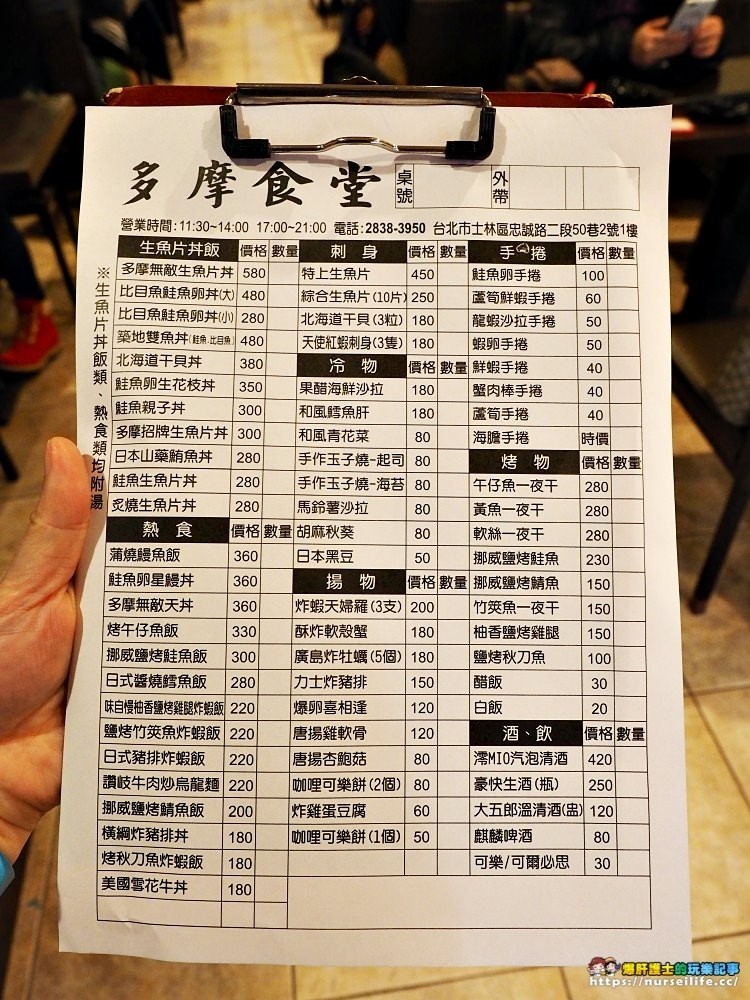 多摩食堂 桌號 外帶
營業時間:11:30~14:00 17:00~21:00 電話:2838-3950 台北市士林區忠誠路二段50巷2號1樓
※生魚片丼飯類、熱食類均附湯
生魚片丼飯 價格 數量
多摩無敵生魚片丼 580
比目魚鮭魚卵丼(大) 480
比目魚鮭魚卵丼(小) 280
築地雙魚丼(鮭魚、比目魚) 480
北海道干貝丼 380
鮭魚卵生花枝丼 350
鮭魚親子丼 300
多摩招牌生魚片丼 300
日本山藥鮪魚丼 280
鮭魚生魚片丼 280
炙燒生魚片丼 280
熱 食 價格 數量
蒲燒鰻魚飯 360
鮭魚卵星鰻丼 360
多摩無敵天丼 360
烤午仔魚飯 330
挪威鹽烤鮭魚飯 300
日式醬燒鱈魚飯 280
味自慢柚香鹽烤雞腿炸蝦飯 220
鹽烤竹筴魚炸蝦飯 220
日式豬排炸蝦飯 220
讚岐牛肉炒烏龍麵 220
挪威鹽烤鯖魚飯 200
橫綱炸豬排丼 180
烤秋刀魚炸蝦飯 180
美國雪花牛丼 180
刺 身 價格 數量
特上生魚片 450
綜合生魚片(10片) 250
北海道干貝(3粒) 180
天使紅蝦刺身(3隻) 180
冷 物 價格 數量
果醋海鮮沙拉 180
和風鱈魚肝 180
和風青花菜 80
手作玉子燒-起司 80
手作玉子燒-海苔 80
馬鈴薯沙拉 80
胡麻秋葵 80
日本黑豆 50
揚 物 價格 數量
炸蝦天婦羅(3支) 200
酥炸軟殼蟹 180
廣島炸牡蠣(5個) 180
力士炸豬排 150
爆卵喜相逢 120
唐揚雞軟骨 120
唐揚杏鮑菇 80
咖哩可樂餅(2個) 80
炸雞蛋豆腐 60
咖哩可樂餅(1個) 50
手 捲 價格 數量
鮭魚卵手捲 100
蘆筍鮮蝦手捲 60
龍蝦沙拉手捲 50
蝦卵手捲 50
鮮蝦手捲 40
蟹肉棒手捲 40
蘆筍手捲 40
海膽手捲 時價
烤 物 價格 數量
午仔魚一夜干 280
黃魚一夜干 280
軟絲一夜干 280
挪威鹽烤鮭魚 230
挪威鹽烤鯖魚 150
竹筴魚一夜干 150
柚香鹽烤雞腿 150
鹽烤秋刀魚 100
醋飯 30
白飯 20
酒、飲 價格 數量
澪MIO汽泡清酒 420
豪快生酒(瓶) 250
大五郎溫清酒(盅) 120
麒麟啤酒 80
可樂/可爾必思 30
爆肝護士的玩樂記事
https://nurseilife.cc/